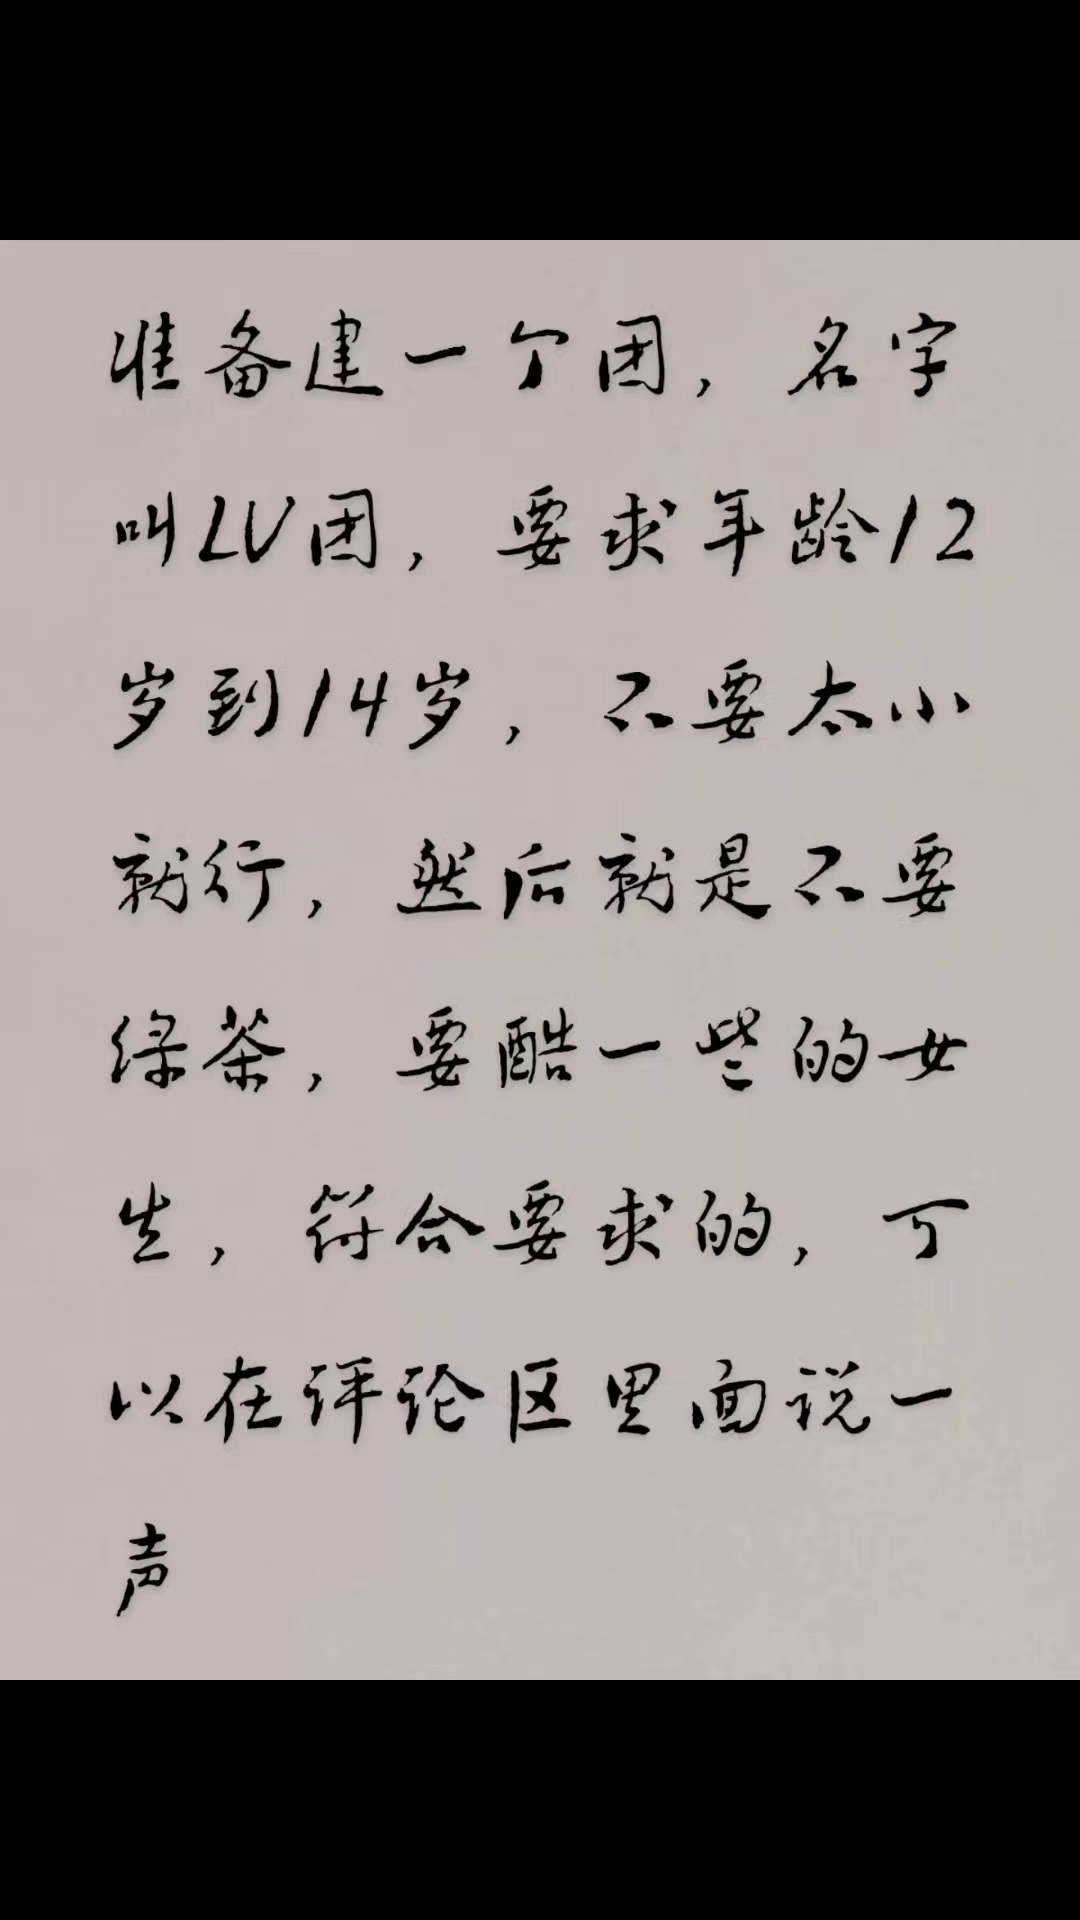 准备建一个团，名字
叫LV团，要求年龄12
岁到14岁，不要太小
就行，然后就是不要
绿茶，要酷一些的女
生，符合要求的，可
以在评论区里面说一
声